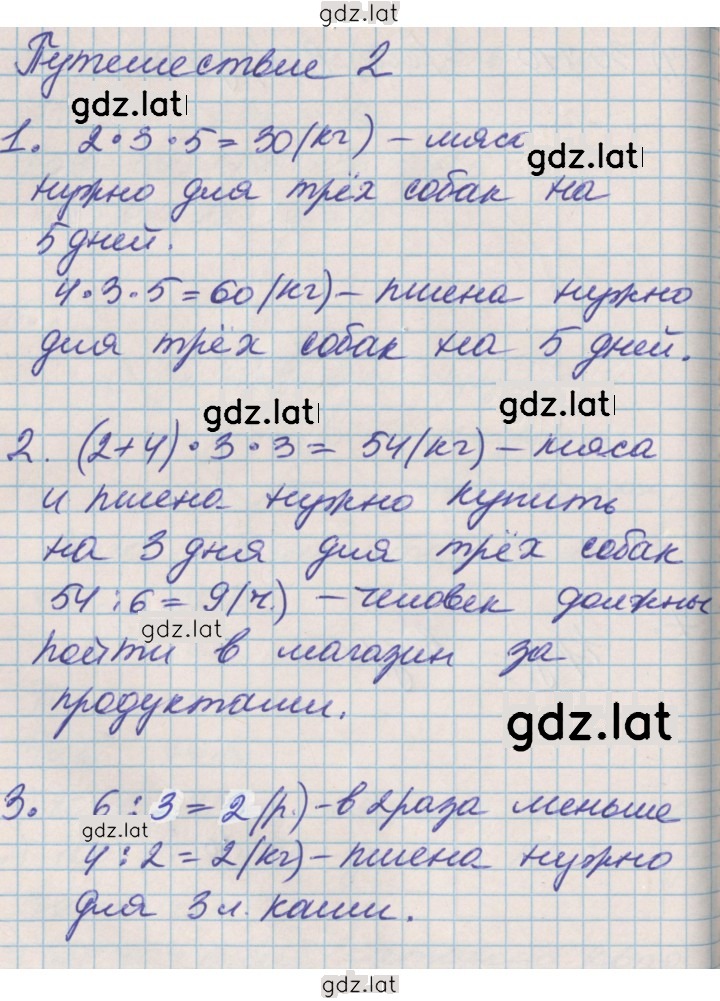 gdz.lat
Путешествие 2
gdz.lat
1. 2·3·5=30(кг) – мяса
gdz.lat
нужно для трёх собак на
5 дней.
4·3·5=60(кг) – пшена нужно
для трёх собак на 5 дней.
gdz.lat gdz.lat
2. (2+4)·3·3= 54(кг) – мяса
и пшена нужно купить
на 3 дня для трёх собак
54:6=9(ч.) – человек должны
gdz.lat
пойти в магазин за
продуктами.
gdz.lat
3. 6:3=2(р.) – в 2 раза меньше
gdz.lat
4:2=2(кг) – пшена нужно
для 3 л. каши.
gdz.lat